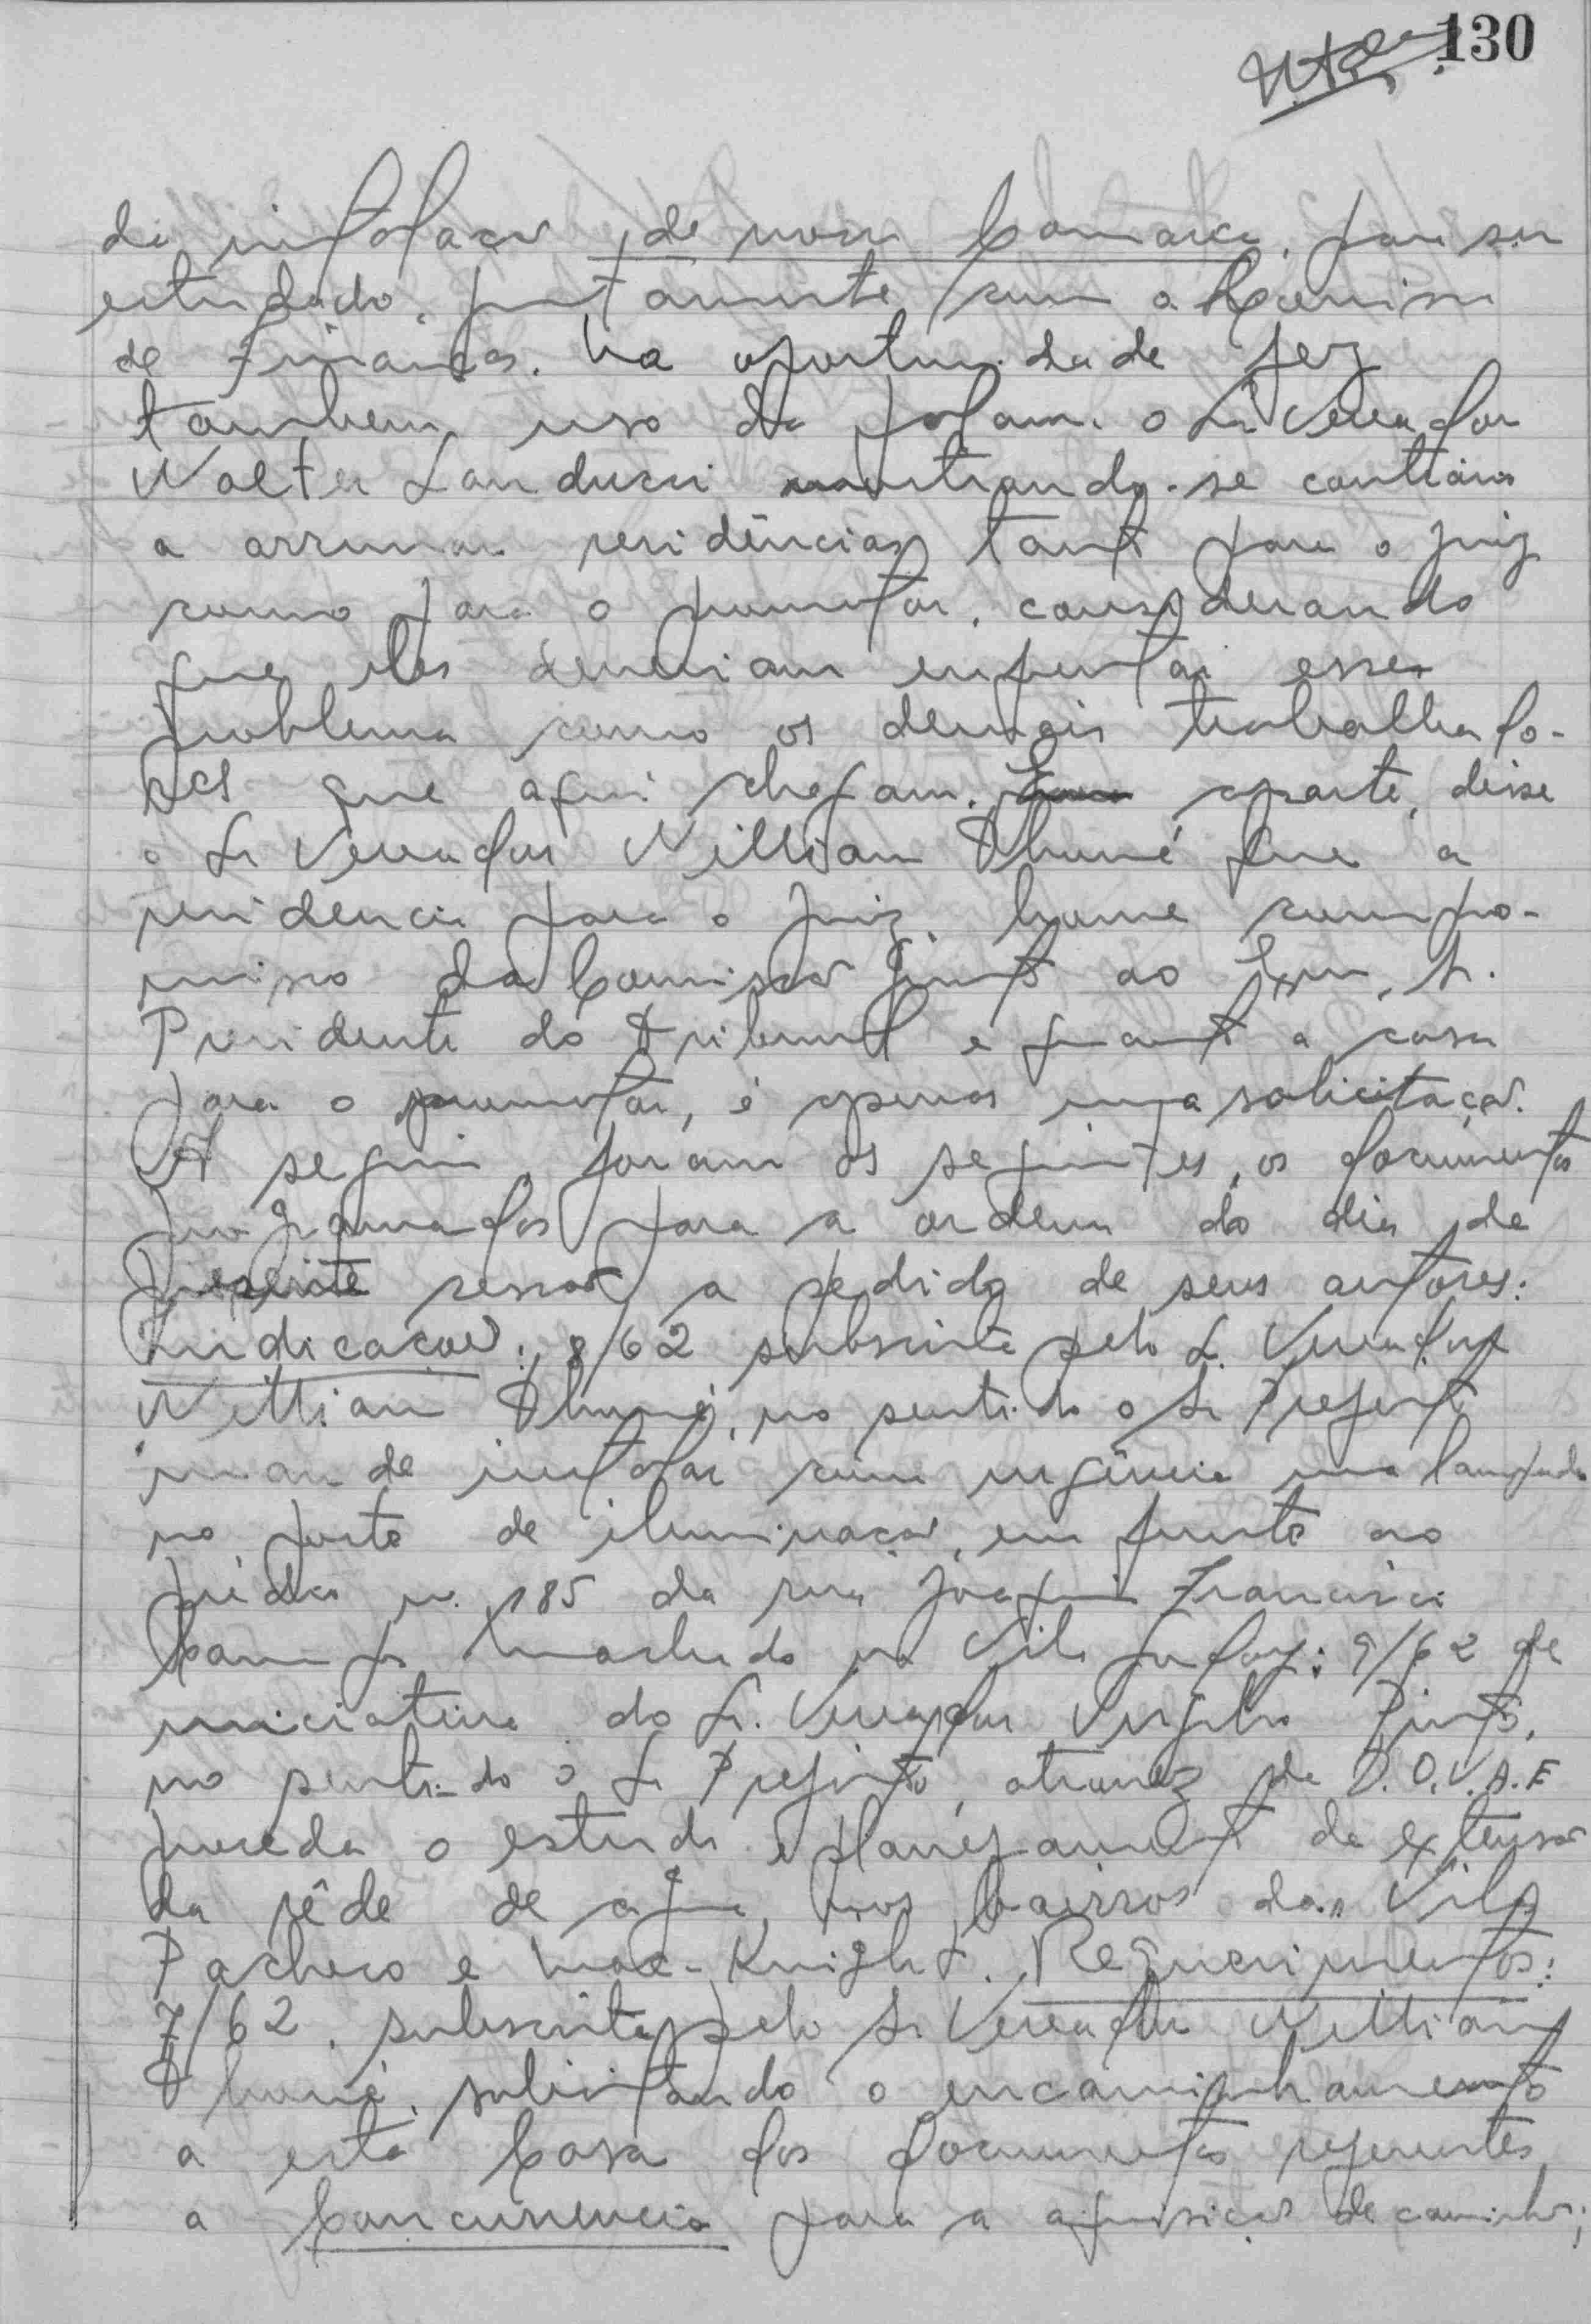 130
de instalação de nossa Comarca, para ser
estudado, juntamente com a Comissão
de Finanças. Na oportunidade fez
tambem uso da palavra o Sr Vereador
Walter Landucci mostrando-se contrário
a arrumar residências tanto para o juiz
como para o promotor, considerando
que eles deveriam enfrentar esses
problema como os demais trabalhado-
res que aqui chegam. aparte, disse
o Sr Vereador Willian Thomé que a
residencia para o juiz, houve compro-
misso da Comissão junto ao Exmo. Sr.
Presidente do Tribunal e quanto a casa
para o promotor, é apenas uma solicitação.
A seguir, foram os seguintes, os documentos
programados para a ordem do dia de
presente sessão a pedido de seus autores:
Indicações: 8/62 subscrita pelo Sr. Vereador
Willian Thomé, no sentido o Sr Prefeito
mande instalar com urgência uma lampada
no poste de iluminação, em frente ao
prédio n. 185 da rua Joaquim Francisco
Machado na Vila : 9/62 de
iniciativa do Sr. Vereador Virgilio Pinto,
no sentido o Sr Prefeito, atravez de D.O.V.A.E
proceda o estudo e planejamento de extensão
da rêde de agua, nos bairros das Vila
Pacheco e Mac-Knight. Requerimentos:
7/62, subscrita pelo Sr Vereador Willian
Thomé, solicitando o encaminhamento
a esta Casa dos documentos referentes
a Concurrencia para a aquisição de caminhão;